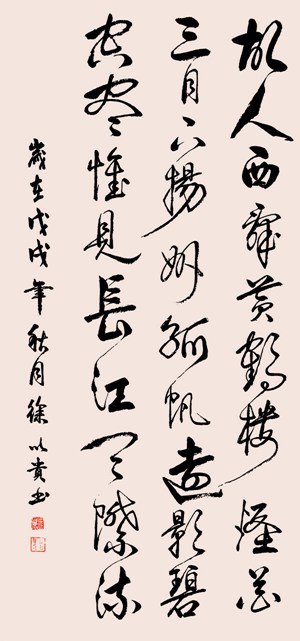 故人西辭黃鶴樓煙花
三月下揚州孤帆遠影碧
空盡惟見長江天際流
歲在戊戌年秋月徐以貴書